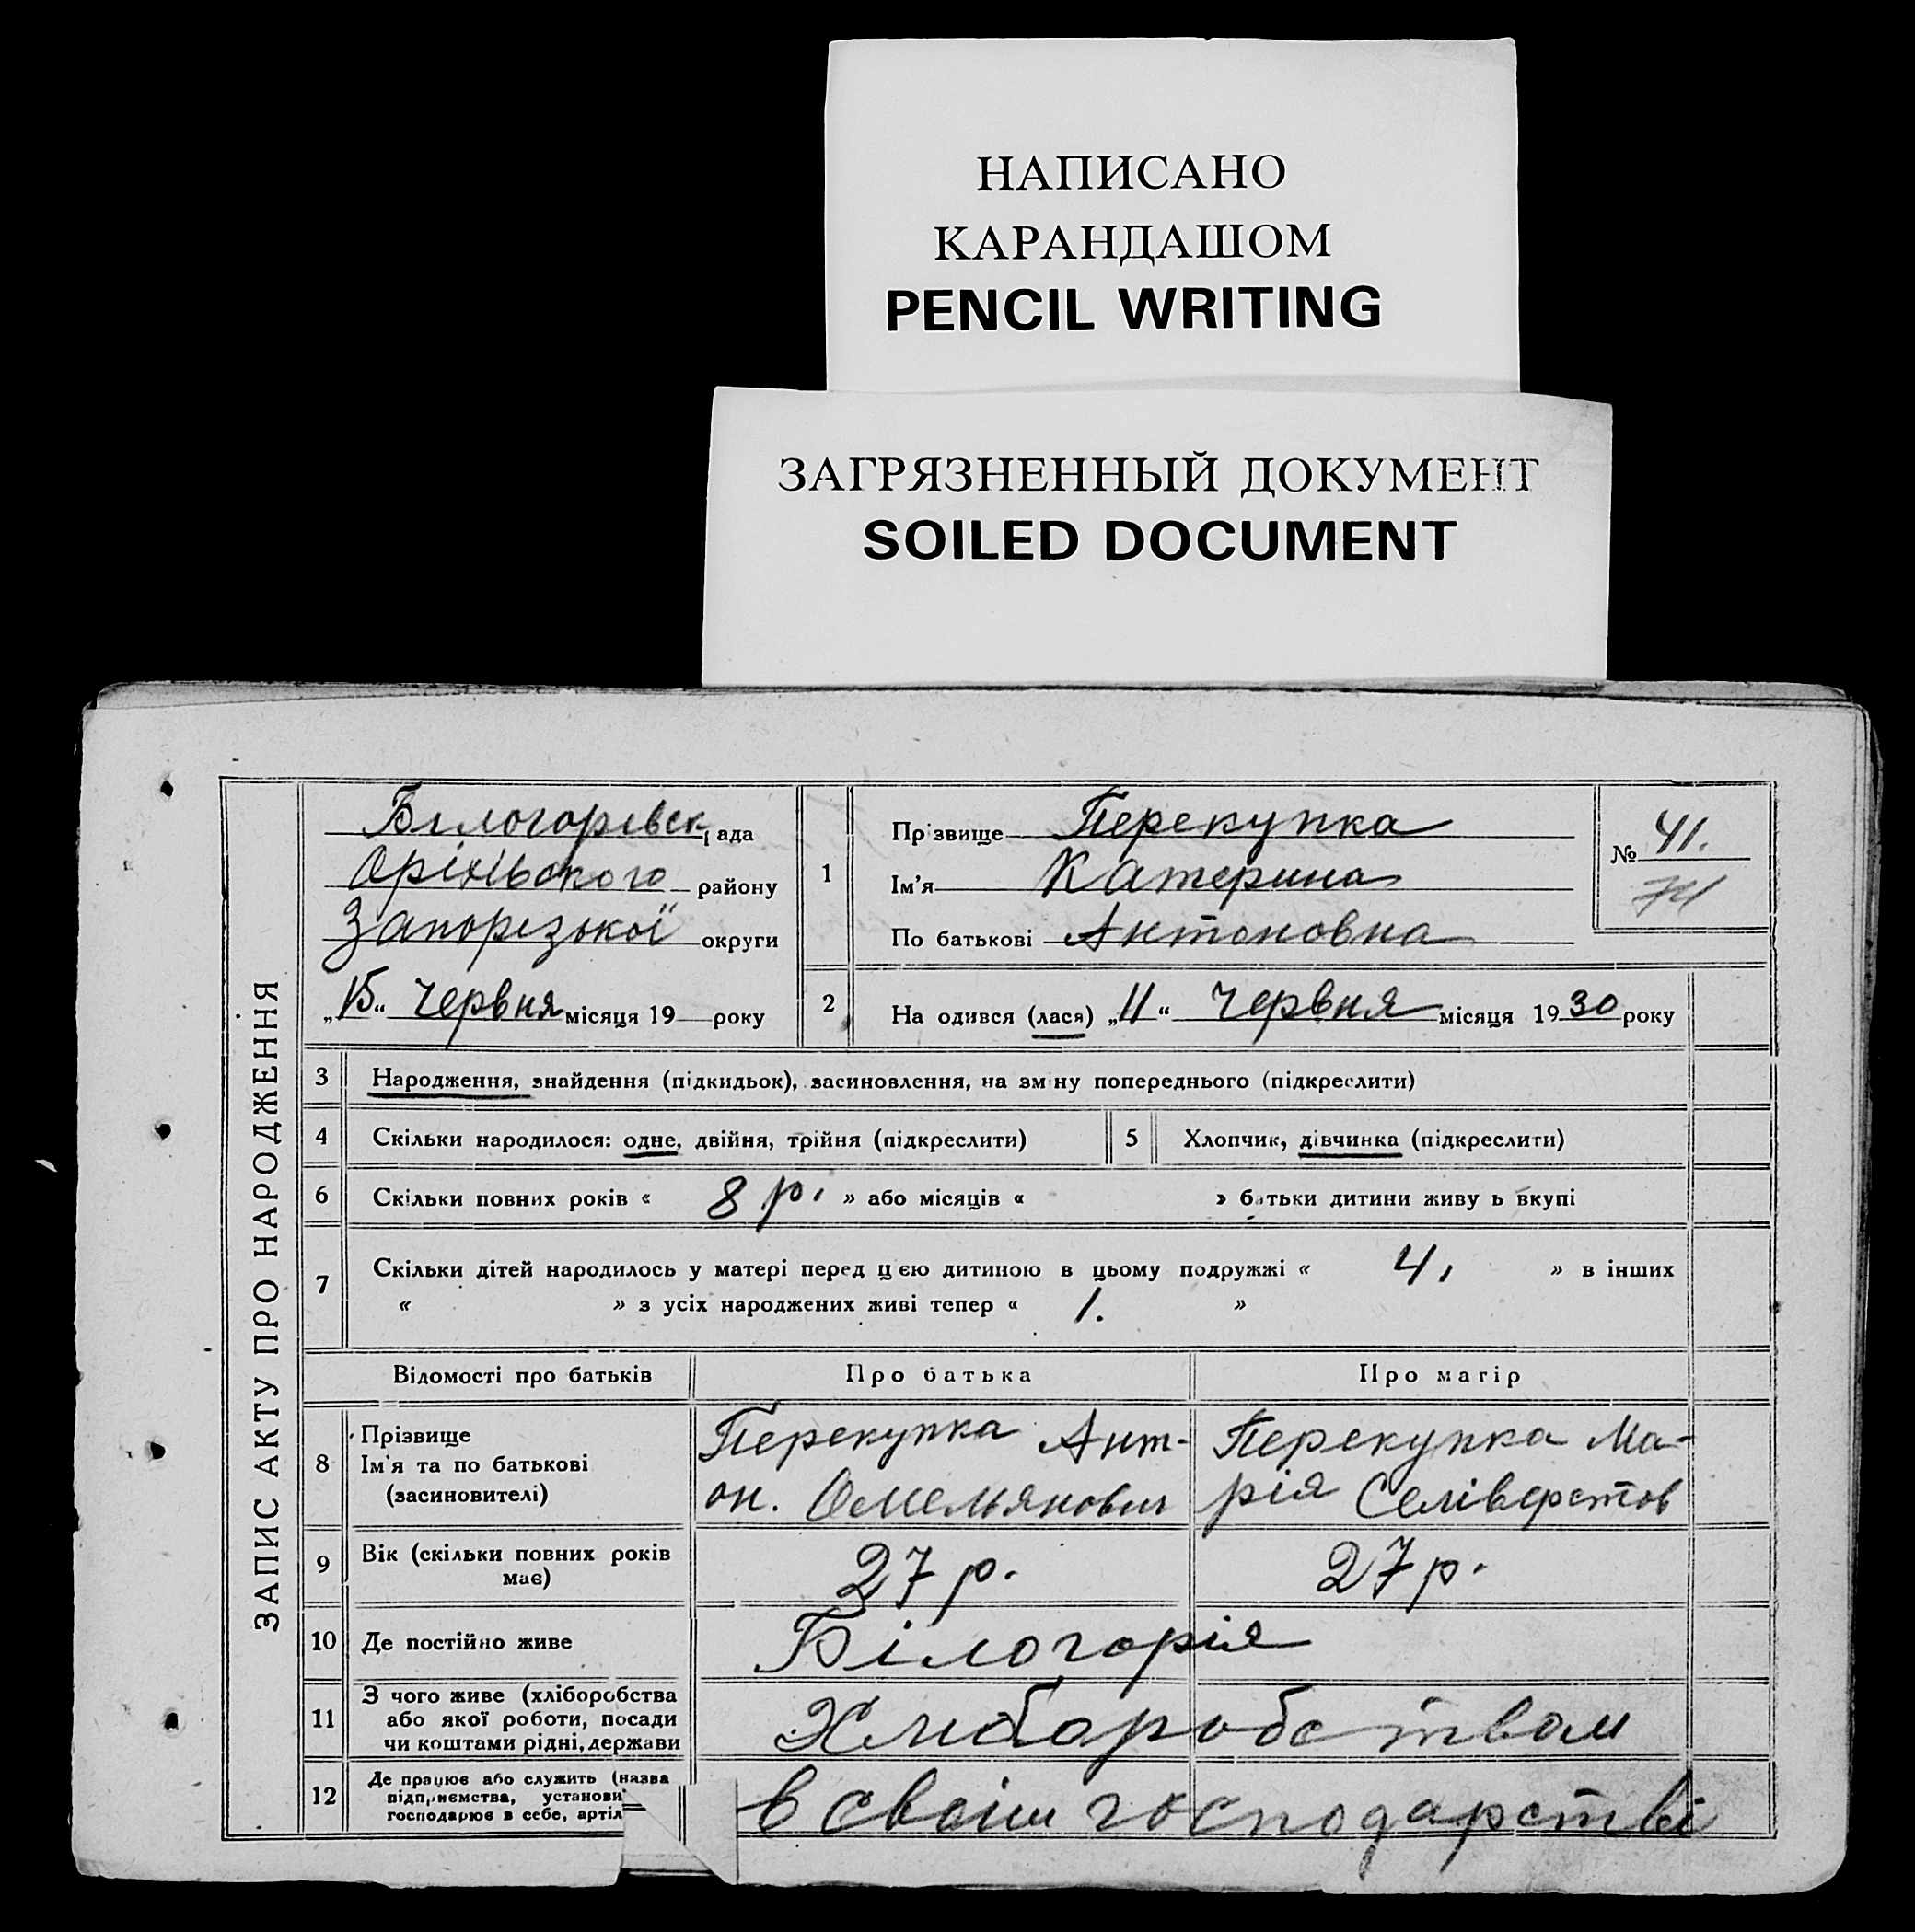 НАПИСАНО
КАРАНДАШОМ
PENCIL WRITING
ЗАГРЯЗНЕННЫЙ ДОКУМЕНТ
SOILED DOCUMENT
ЗАПИС АКТУ ПРО НАРОДЖЕННЯ
Білогорівск. ада
Оріхівського району
Запорізької округи
„15“ Червня місяця 19 року
1
Прізвище Перекупка
Ім'я Катерина
По батькові Антоновна
№ 41.
2
На одився (лася) „11“ Червня місяця 1930 року
3 Народження, знайдення (підкидьок), засиновлення, на зміну попереднього (підкреслити)
4 Скільки народилося: одне, двійня, трійня (підкреслити) 5 Хлопчик, дівчинка (підкреслити)
6 Скільки повних років « 8 р. » або місяців « » батьки дитини живу ь вкупі
7 Скільки дітей народилось у матері перед цією дитиною в цьому подружжі « 4, » в інших
« » з усіх народжених живі тепер « 1. »
Відомості про батьків Про батька Про матір
8 Прізвище
Ім'я та по батькові
(засиновителі)
Перекупка Ант-
он. Омельянович
Перекупка Ма-
рія Селіверстов
9 Вік (скільки повних років
має)
27 р. 27 р.
10 Де постійно живе Білогорія
11 З чого живе (хліборобства
або якої роботи, посади
чи коштами рідні, держави
Хліборобством
12 Де працює або служить (назва
підприємства, установи
господарює в себе, артіл
в своїм господарстві